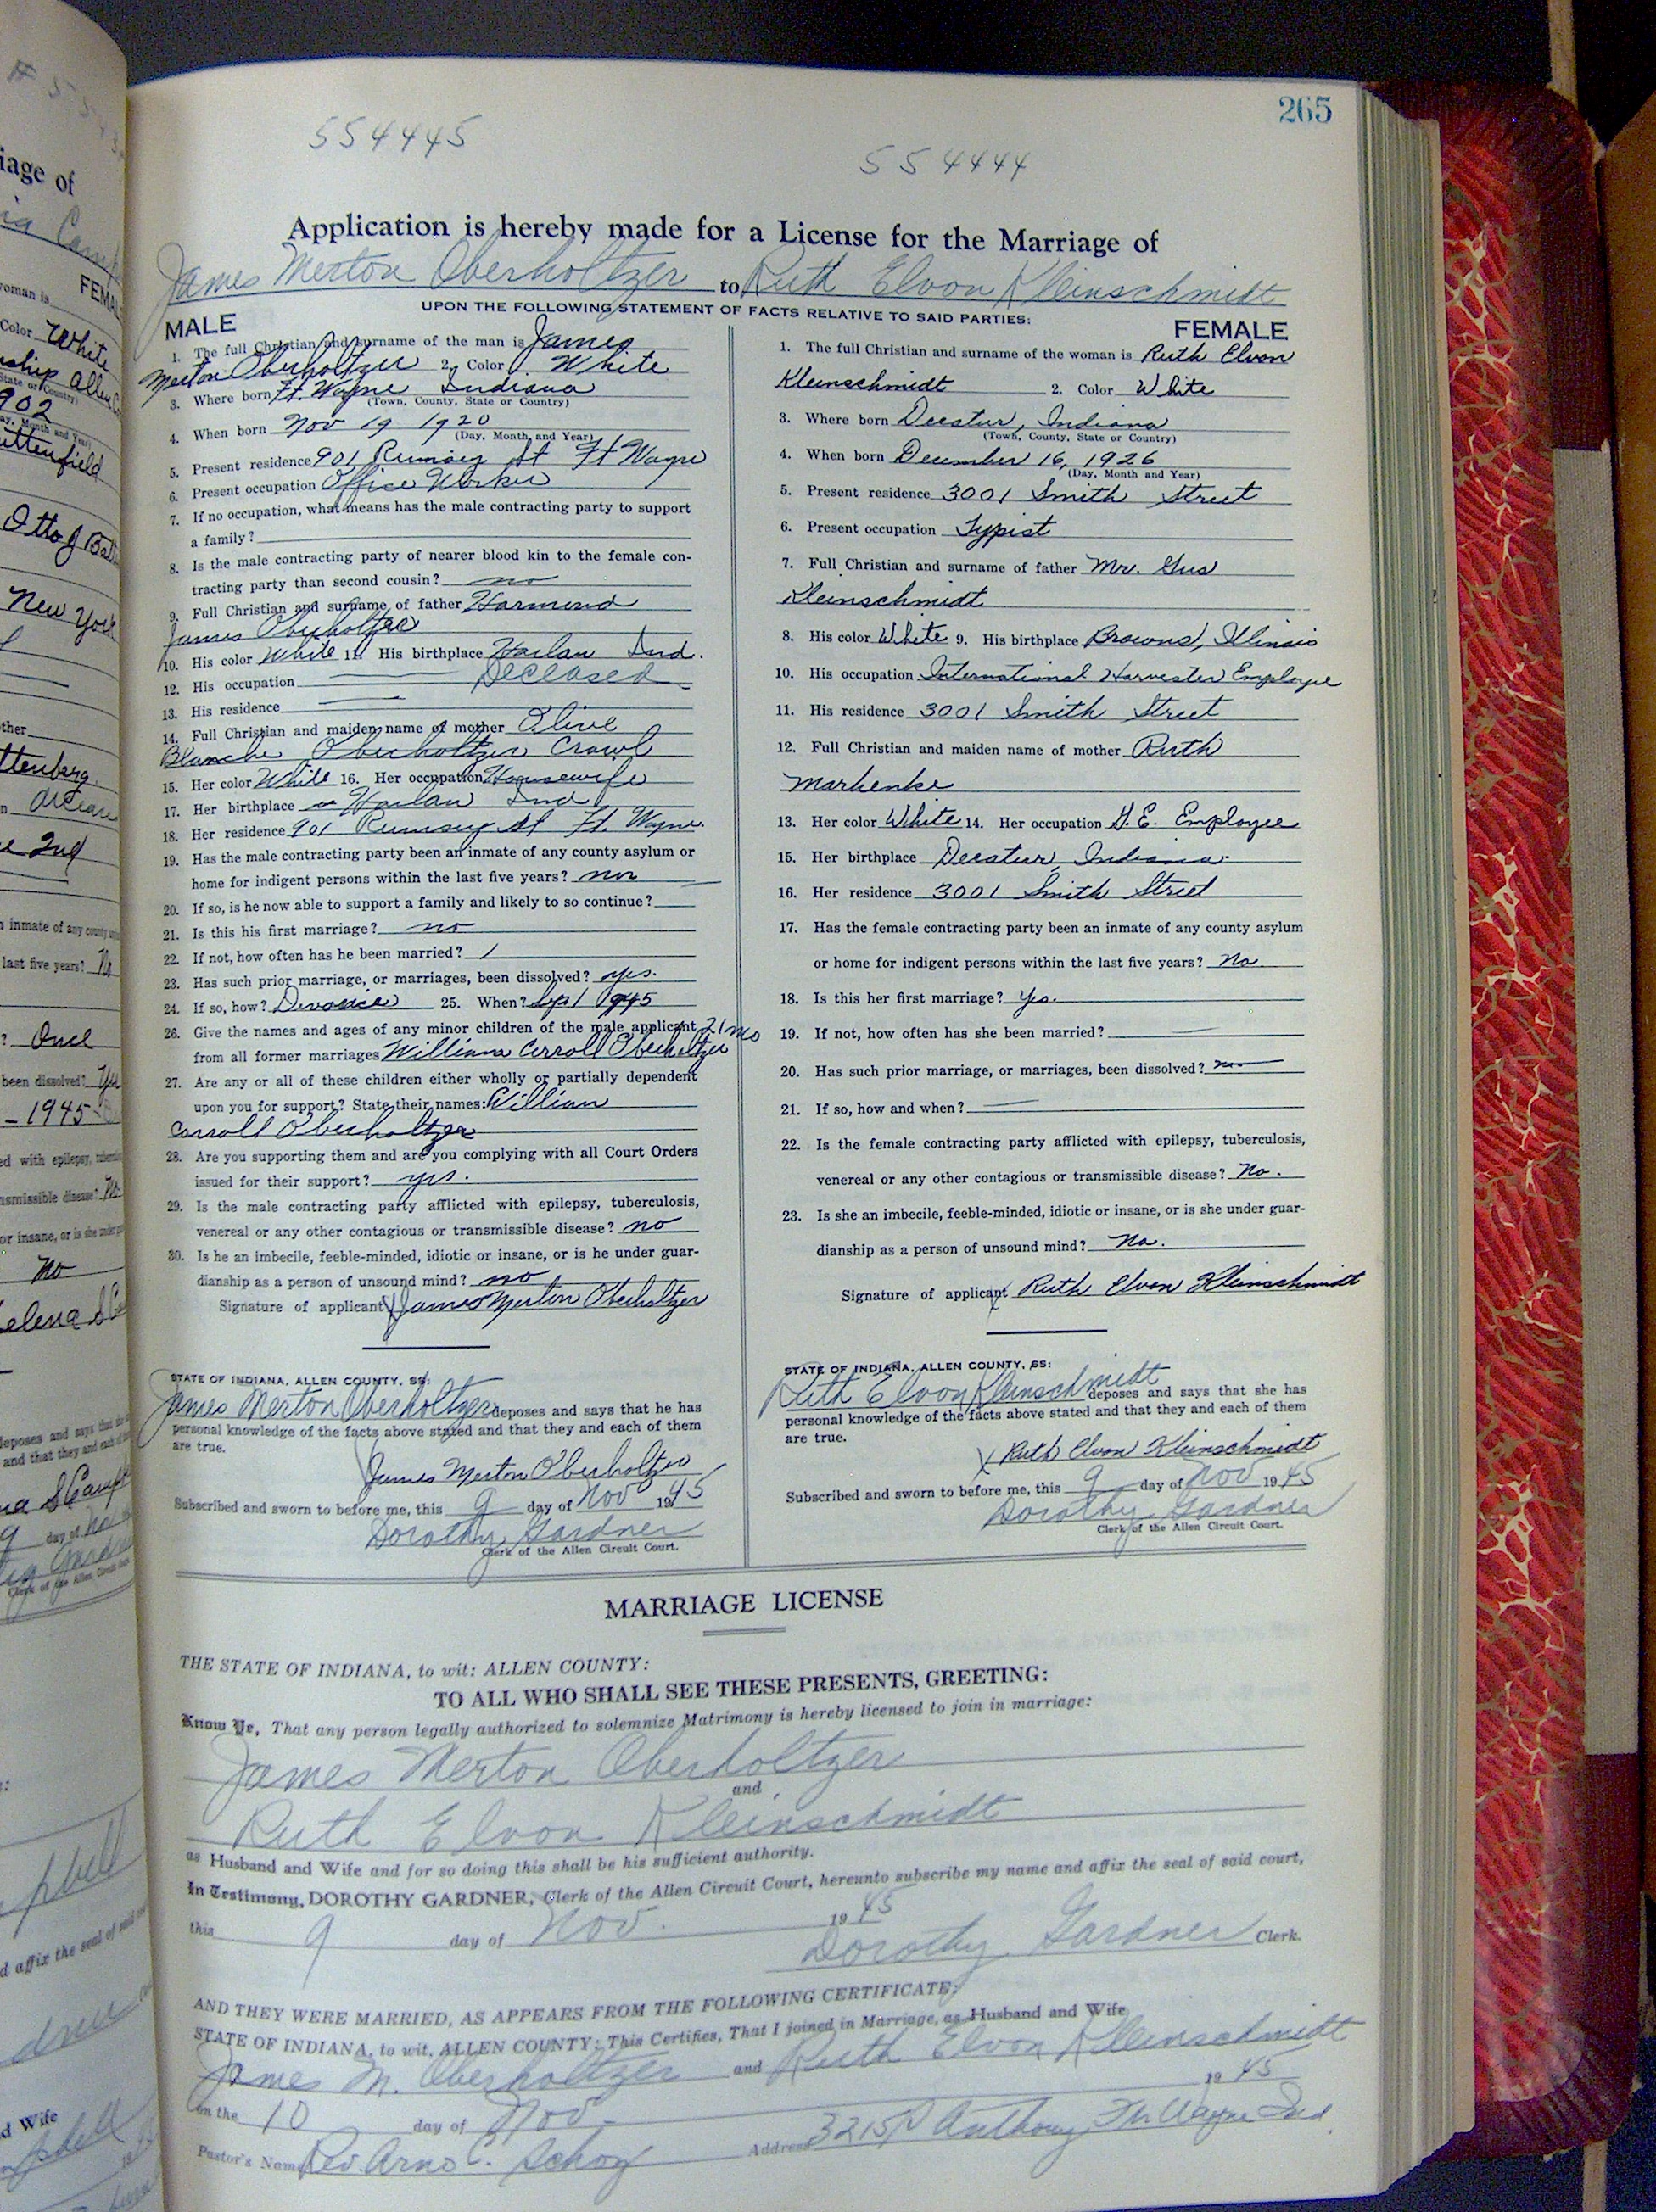 265
554445
554444
Application is hereby made for a License for the Marriage of
James Merton Oberholtzer to Ruth Elvon Kleinschmidt
UPON THE FOLLOWING STATEMENT OF FACTS RELATIVE TO SAID PARTIES:
MALE
1. The full Christian and surname of the man is James
Merton Oberholtzer 2. Color White
3. Where born Ft. Wayne Indiana
(Town, County, State or Country)
4. When born Nov 19 1920
(Day, Month, and Year)
5. Present residence 901 Rumsey St Ft Wayne
6. Present occupation Office Worker
7. If no occupation, what means has the male contracting party to support
a family?
8. Is the male contracting party of nearer blood kin to the female con-
tracting party than second cousin? no
9. Full Christian and surname of father Harmond
James Oberholtzer
10. His color White 11. His birthplace Harlan Ind.
12. His occupation Deceased
13. His residence
14. Full Christian and maiden name of mother Olive
Blanche Oberholtzer Crowl
15. Her color White 16. Her occupation Housewife
17. Her birthplace Harlan Ind
18. Her residence 901 Rumsey St Ft. Wayne.
19. Has the male contracting party been an inmate of any county asylum or
home for indigent persons within the last five years?
20. If so, is he now able to support a family and likely to so continue?
21. Is this his first marriage? no
22. If not, how often has he been married? 1
23. Has such prior marriage, or marriages, been dissolved? yes.
24. If so, how? Divorice 25. When? Sep 1 1945
26. Give the names and ages of any minor children of the male applicant 21 mo
from all former marriages William Carroll Oberholtzer
27. Are any or all of these children either wholly or partially dependent
upon you for support? State their names: William
Carroll Oberholtzer
28. Are you supporting them and are you complying with all Court Orders
issued for their support? yes.
29. Is the male contracting party afflicted with epilepsy, tuberculosis,
venereal or any other contagious or transmissible disease? no
30. Is he an imbecile, feeble-minded, idiotic or insane, or is he under guar-
dianship as a person of unsound mind? no
Signature of applicant James Merton Oberholtzer
STATE OF INDIANA, ALLEN COUNTY, SS:
James Merton Oberholtzer deposes and says that he has
personal knowledge of the facts above stated and that they and each of them
are true.
James Merton Oberholtzer
Subscribed and sworn to before me, this 9 day of Nov 1945
Dorothy Gardner
Clerk of the Allen Circuit Court.
FEMALE
1. The full Christian and surname of the woman is Ruth Elvon
Kleinschmidt 2. Color White
3. Where born Decatur, Indiana
(Town, County, State or Country)
4. When born December 16, 1926
(Day, Month and Year)
5. Present residence 3001 Smith Street
6. Present occupation Typist
7. Full Christian and surname of father Mr. Gus
Kleinschmidt
8. His color White 9. His birthplace Browns, Illinois
10. His occupation International Harvester Employee
11. His residence 3001 Smith Street
12. Full Christian and maiden name of mother Ruth
Marhenke
13. Her color White 14. Her occupation G.E. Employee
15. Her birthplace Decatur, Indiana.
16. Her residence 3001 Smith Street
17. Has the female contracting party been an inmate of any county asylum
or home for indigent persons within the last five years? No
18. Is this her first marriage? Yes.
19. If not, how often has she been married?
20. Has such prior marriage, or marriages, been dissolved?
21. If so, how and when?
22. Is the female contracting party afflicted with epilepsy, tuberculosis,
venereal or any other contagious or transmissible disease? No.
23. Is she an imbecile, feeble-minded, idiotic or insane, or is she under guar-
dianship as a person of unsound mind? No.
Signature of applicant X Ruth Elvon Kleinschmidt
STATE OF INDIANA, ALLEN COUNTY, SS:
Ruth Elvon Kleinschmidt deposes and says that she has
personal knowledge of the facts above stated and that they and each of them
are true.
X Ruth Elvon Kleinschmidt
Subscribed and sworn to before me, this 9 day of Nov 1945
Dorothy Gardner
Clerk of the Allen Circuit Court.
MARRIAGE LICENSE
THE STATE OF INDIANA, to wit: ALLEN COUNTY:
TO ALL WHO SHALL SEE THESE PRESENTS, GREETING:
Know Ye, That any person legally authorized to solemnize Matrimony is hereby licensed to join in marriage:
James Merton Oberholtzer
and
Ruth Elvon Kleinschmidt
as Husband and Wife and for so doing this shall be his sufficient authority.
In Testimony, DOROTHY GARDNER, Clerk of the Allen Circuit Court, hereunto subscribe my name and affix the seal of said court,
this 9 day of Nov. 1945
Dorothy Gardner Clerk.
AND THEY WERE MARRIED, AS APPEARS FROM THE FOLLOWING CERTIFICATE:
STATE OF INDIANA, to wit, ALLEN COUNTY: This Certifies, That I joined in Marriage, as Husband and Wife
James M. Oberholtzer and Ruth Elvon Kleinschmidt
on the 10 day of Nov. 1945
Pastor's Name Rev. Arno C. Address 3215 Anthony Ft. Wayne Ind.